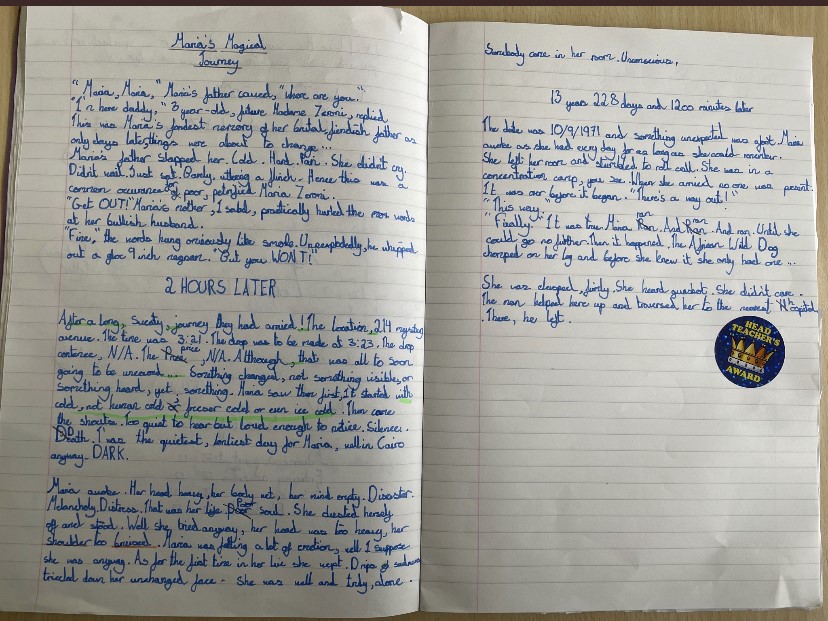 Maria's Magical
Journey
"Maria, Maria," Maria's father called, "where are you."
"I'm here daddy," 3 year-old, future Madame Zeroni, replied
This was Maria's fondest memory of her brutal, fiendish father as
only days later things were about to change...
Maria's father slapped her. Cold. Hard. Pain. She didn't cry.
Didn't wail. Just sat. Barely uttering a flinch. Hence this was a
common occurance for poor, petrified Maria Zeroni.
"Get OUT!" Maria's mother, Isabel, practically hurled the words
at her bullish husband.
"Fine," the words hung ominously like smoke. Unexpectedly, he whipped
out a gloc 9 inch magnam. "But you WON'T!"
2 HOURS LATER
After a long, sweaty, journey they had arrived! The Location, 214
avenue. The time was 3:21. The drop was to be made at 3:23. The drop
contence, N/A. The price, N/A. Although, that was all to soon
going to be unearned.... Something changed, not something visible, or
something heard, yet, something. Maria saw than first, It started with
cold, not human cold or freezer cold or even ice cold. Then came
the shouts. Too quiet to hear but loud enough to notice. Silence.
Death. I was the quietest, lonliest day for Maria, well in Cairo
anyway. DARK.
Maria awoke. Her head heavy, her body wet, her mind empty. Disaster.
Melancholy. Distress. That was her life poor soul. She dusted herself
off and stood. Well she tried anyway, her head was too heavy, her
shoulder too bruised. Maria was felling a lot of emotion, well I suppose
she was anyway. As for the first time in her live she wept. Drips of sadness
tricled down her unchanged face - she was well and truly, alone.
Somebody came in her room. Unconscious.
13 years 228 days and 1200 minutes later
The date was 10/9/1971 and something unexpected was afoot. Maria
awoke as she had every day for as long as she could remember.
She left her room and stumbled to roll call. She was in a
concentration camp, you see. When she arrived no one was present.
It was over before it began. "There's a way out!"
"This way."
"Finally." It was true. Maria ran. And ran. And ran. Until she
could go no further. Then it happened. The African Wild Dog
chomped on her leg and before she knew it she only had one...
She was clasped, firtly. She heard gunshot. She didn't care.
The man helped here up and traversed her to the nearest Hospital
. There, he left.
HEAD
TEACHER'S
AWARD